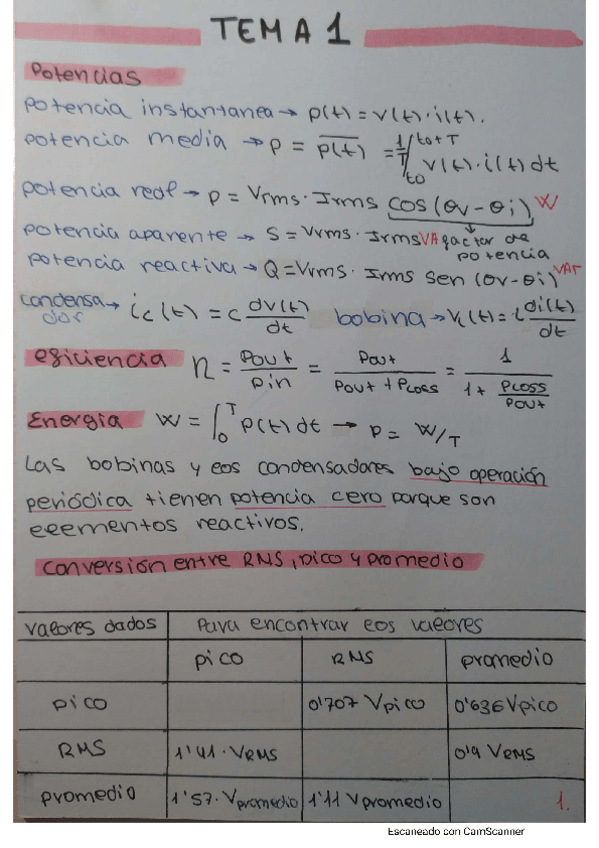 TEMA 1
Potencias
potencia instantanea → p(t) = v(t)·i(t).
potencia media → p = \overline{p(t)} = 1/T ∫_{to}^{to+T} v(t)·i(t) dt
potencia real → p = Vrms · Irms cos(θv - θi) W
factor de potencia
potencia aparente → S = Vrms · Irms VA
potencia reactiva → Q = Vrms · Irms sen(θv - θi) VAr
condensador → ic(t) = C dv(t)/dt bobina → VL(t) = L di(t)/dt
eficiencia η = Pout/Pin = Pout/(Pout + PLoss) = 1/(1 + PLoss/Pout)
Energia W = ∫_0^T P(t) dt → p = W/T
Las bobinas y los condensadores bajo operación
periódica tienen potencia cero porque son
elementos reactivos.
conversión entre RMS, pico y promedio
valores dados Para encontrar los valores
pico RMS promedio
pico 0'707 Vpico 0'636 Vpico
RMS 1'41 · VRMS 0'9 VRMS
promedio 1'57 · Vpromedio 1'11 Vpromedio
1.
Escaneado con CamScanner